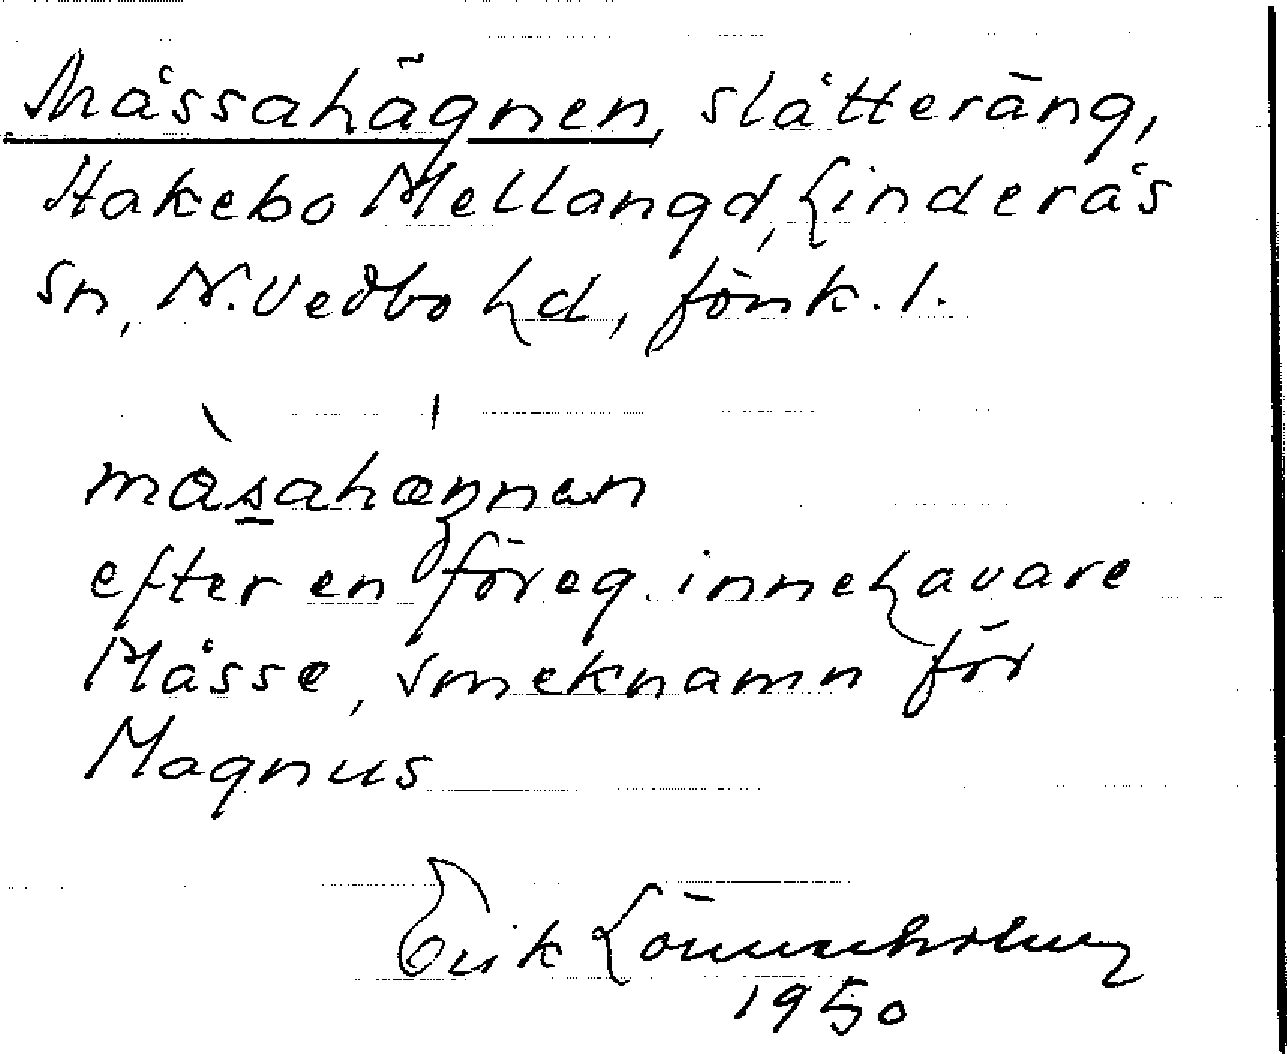 Måssahägnen, slåtteräng,
Hakebo Mellangd, Linderås
sn, N. Vedbo hd, Jönk. l.
måsahæŋnan
efter en föreg. innehavare
Måsse, smeknamn för
Magnus
Erik Lönnerholm
1950